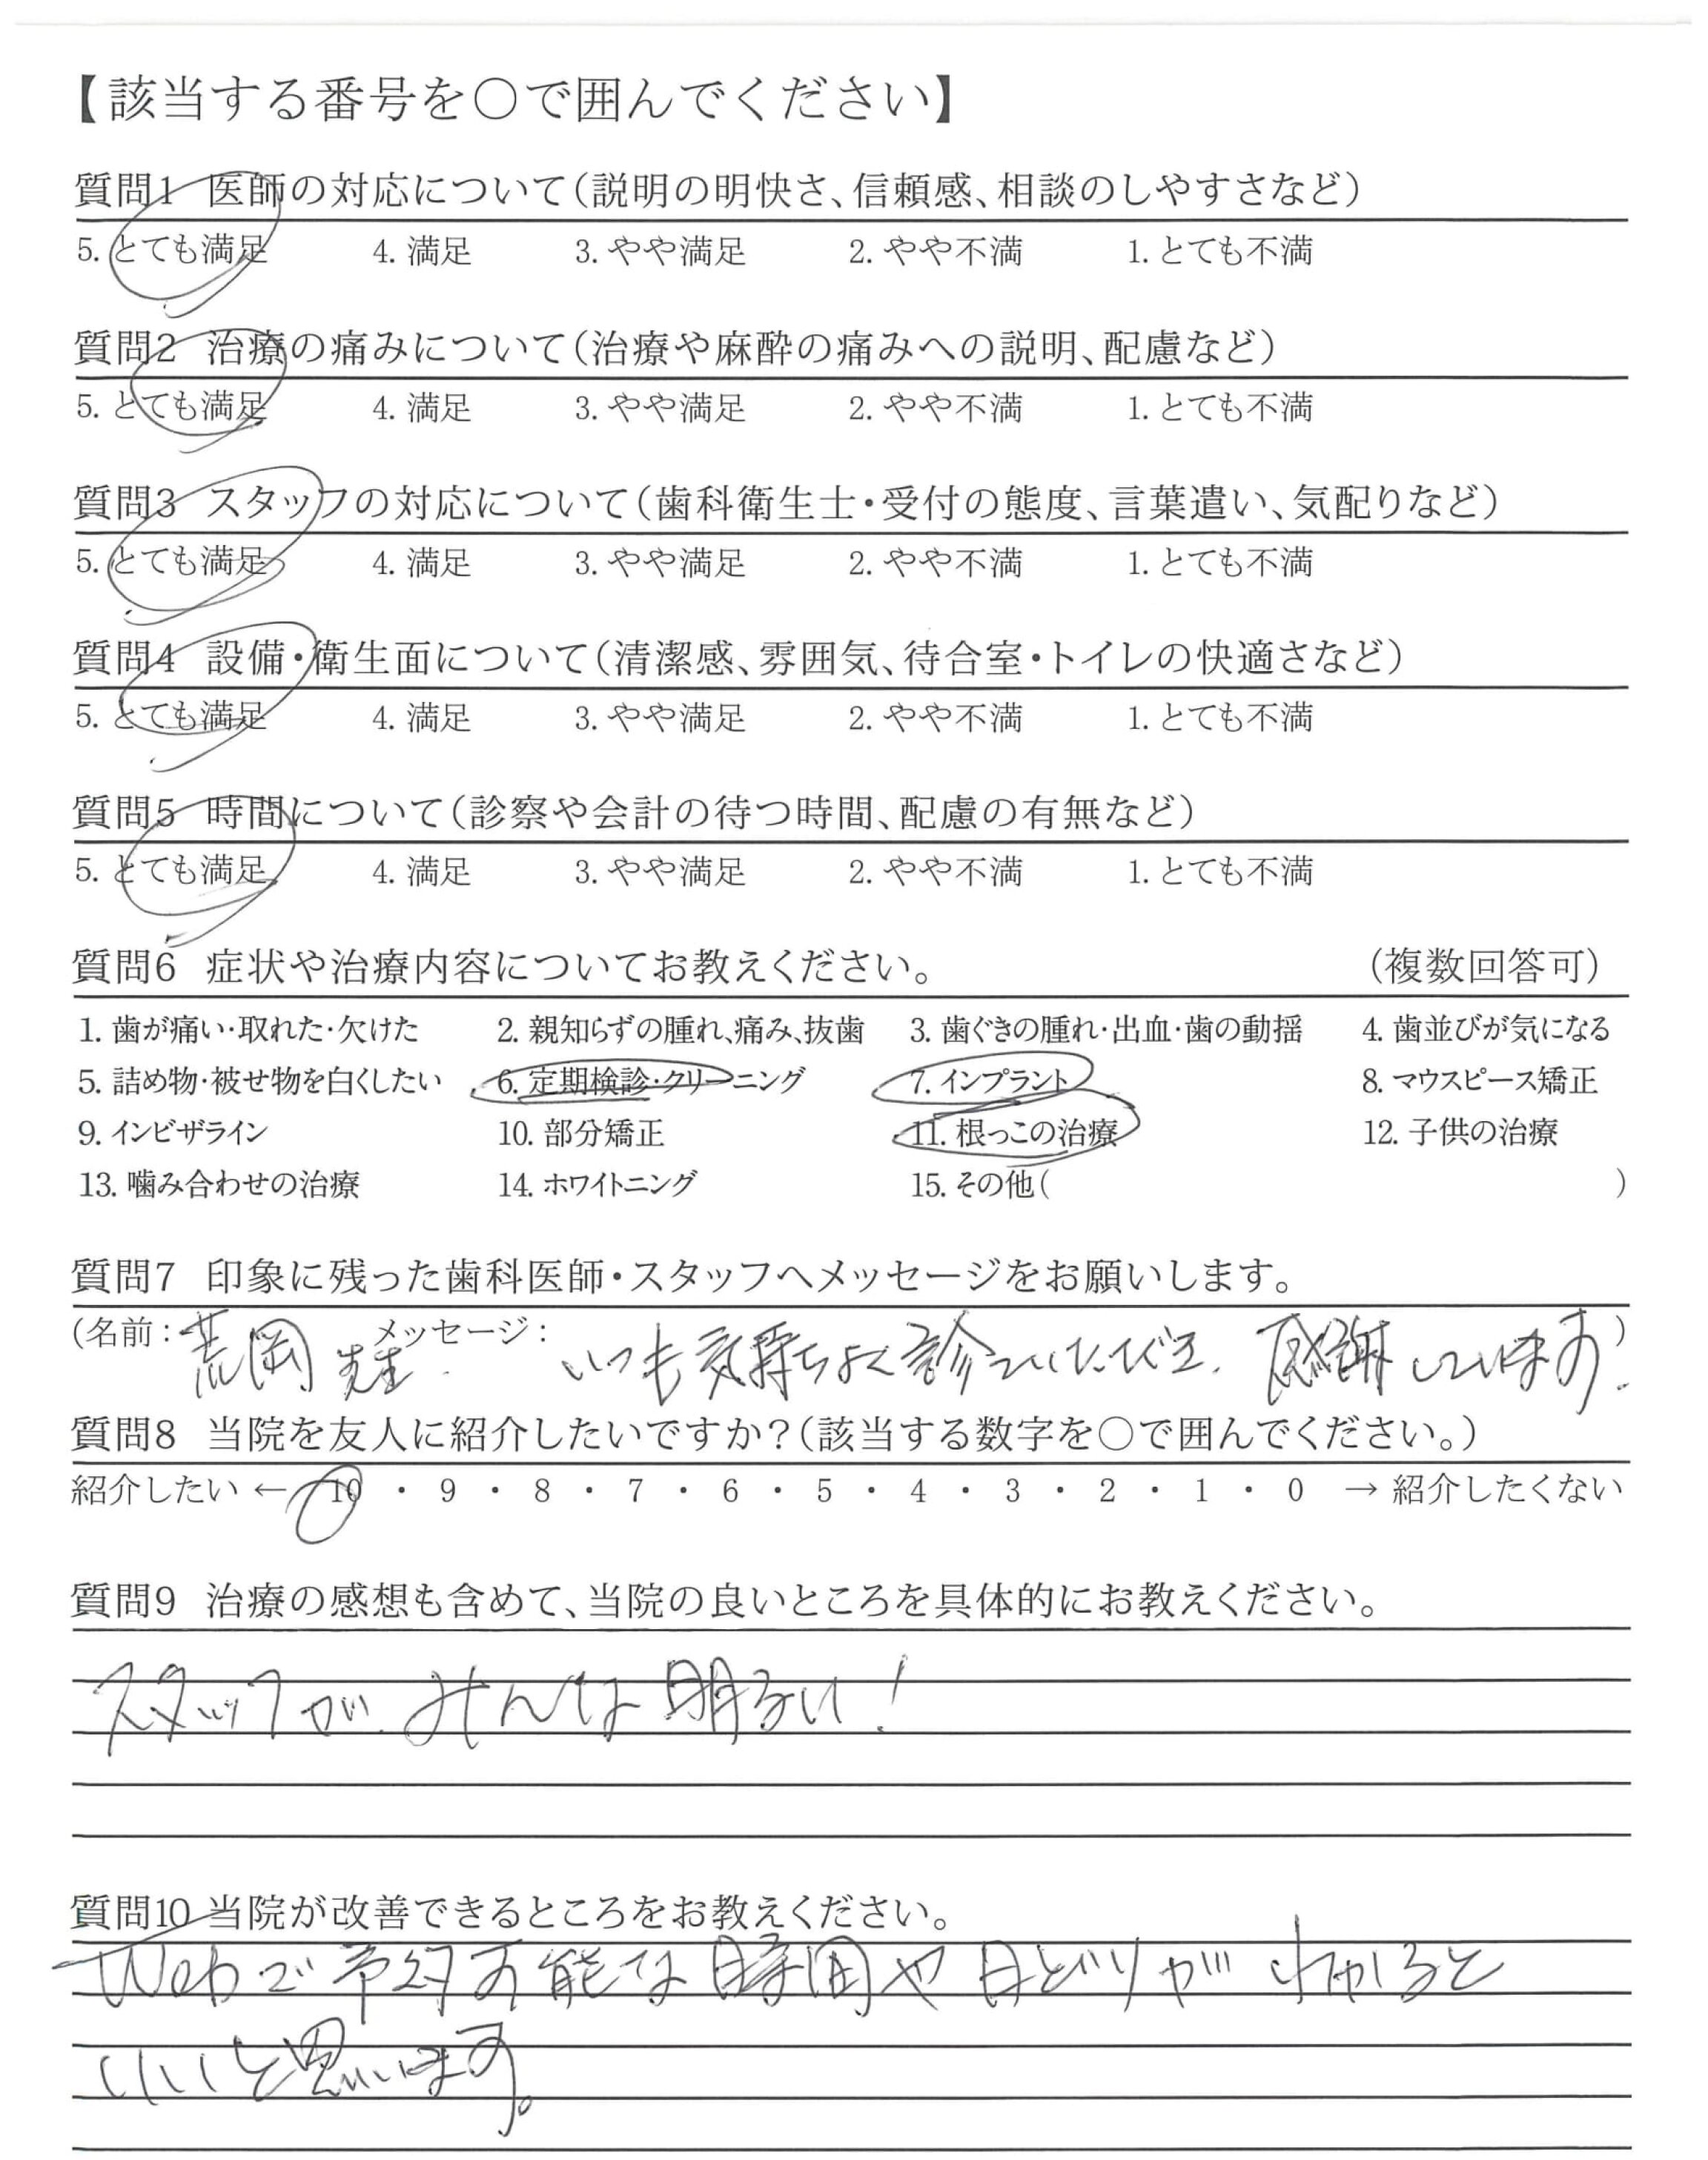 【該当する番号を○で囲んでください】
質問1 医師の対応について（説明の明快さ、信頼感、相談のしやすさなど）
5. とても満足 4. 満足 3. やや満足 2. やや不満 1. とても不満
質問2 治療の痛みについて（治療や麻酔の痛みへの説明、配慮など）
5. とても満足 4. 満足 3. やや満足 2. やや不満 1. とても不満
質問3 スタッフの対応について（歯科衛生士・受付の態度、言葉遣い、気配りなど）
5. とても満足 4. 満足 3. やや満足 2. やや不満 1. とても不満
質問4 設備・衛生面について（清潔感、雰囲気、待合室・トイレの快適さなど）
5. とても満足 4. 満足 3. やや満足 2. やや不満 1. とても不満
質問5 時間について（診察や会計の待つ時間、配慮の有無など）
5. とても満足 4. 満足 3. やや満足 2. やや不満 1. とても不満
質問6 症状や治療内容についてお教えください。 （複数回答可）
1. 歯が痛い・取れた・欠けた 2. 親知らずの腫れ、痛み、抜歯 3. 歯ぐきの腫れ・出血・歯の動揺 4. 歯並びが気になる
5. 詰め物・被せ物を白くしたい 6. 定期検診・クリーニング 7. インプラント 8. マウスピース矯正
9. インビザライン 10. 部分矯正 11. 根っこの治療 12. 子供の治療
13. 噛み合わせの治療 14. ホワイトニング 15. その他（ ）
質問7 印象に残った歯科医師・スタッフへメッセージをお願いします。
（名前：荒岡先生. メッセージ：いつも気持ちよく診ていただき、感謝しています.）
質問8 当院を友人に紹介したいですか？（該当する数字を○で囲んでください。）
紹介したい ← 10 ・ 9 ・ 8 ・ 7 ・ 6 ・ 5 ・ 4 ・ 3 ・ 2 ・ 1 ・ 0 → 紹介したくない
質問9 治療の感想も含めて、当院の良いところを具体的にお教えください。
スタッフが、みんな明るい！
質問10 当院が改善できるところをお教えください。
Webで予約可能な時間や日どりがわかると
いいと思います。